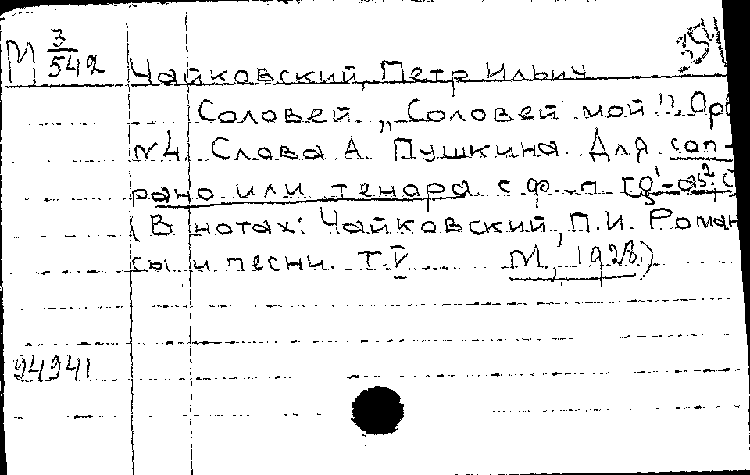 М 3/542
354
Чайковский, Петр Ильич
Соловей. „Соловей мой!". Ор
№4. Слова А. Пушкина. Для соп-
рано или тенора с ф.-п.
(В нотах: Чайковский, П.И. Роман
сы и песни. Т.V М., 1928.)
94941